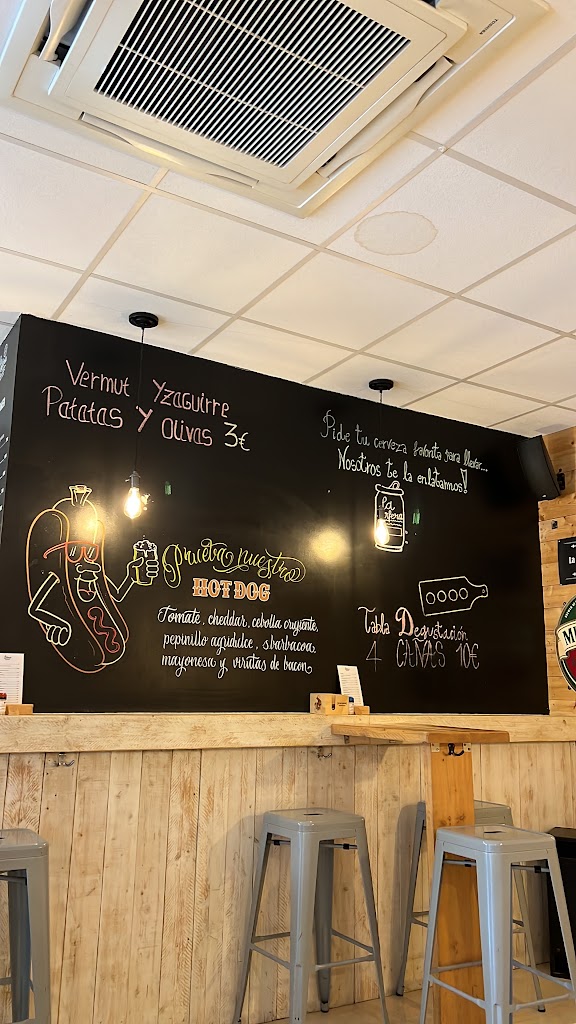 TOSHIBA
Vermut Yzaguirre
Patatas y olivas 3€
Pide tu cerveza favorita para llevar...
Nosotros te la enlatamos!
la
Prueba nuestro
HOT DOG
Tomate, cheddar, cebolla crujiente,
pepinillo agridulce, sbarbacoa,
mayonesa y virutas de bacon
Tabla Degustación
4 CAÑAS 10€
La